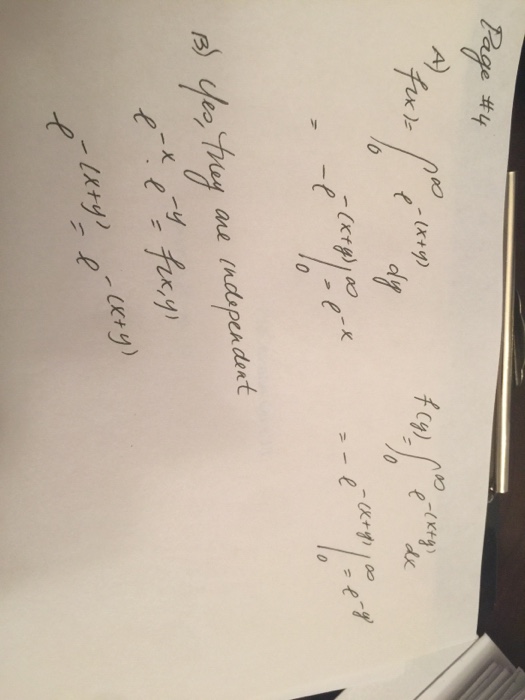 Page #4
A) f(x) = ∫₀^∞ e^-(x+y) dy
= -e^-(x+y) |₀^∞ = e^-x
f(y) = ∫₀^∞ e^-(x+y) dx
= -e^-(x+y) |₀^∞ = e^-y
B) Yes, they are independent
e^-x · e^-y = f(x,y)
e^-(x+y) = e^-(x+y)